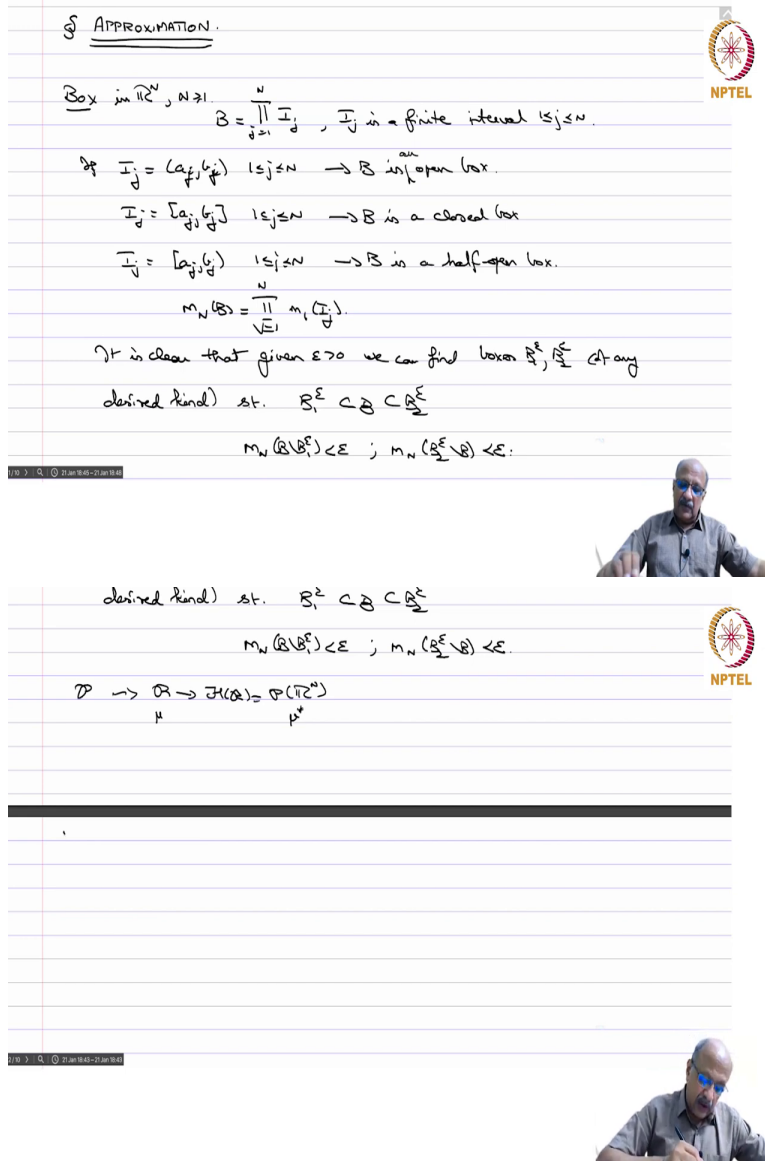 § APPROXIMATION.
NPTEL
Box in ℝᴺ, N≥1.
B = ∏_{j=1}^{N} I_j , I_j is a finite interval 1≤j≤N.
If I_j = (a_j, b_j) 1≤j≤N → B is an open box.
I_j = [a_j, b_j] 1≤j≤N → B is a closed box
I_j = [a_j, b_j) 1≤j≤N → B is a half-open box.
m_N(B) = ∏_{j=1}^{N} m_1(I_j).
It is clear that given ε>0 we can find boxes B_1^ε, B_2^ε (of any
desired kind) st. B_1^ε ⊂ B ⊂ B_2^ε
m_N(B\B_1^ε) < ε ; m_N(B_2^ε\B) < ε.
1/10 21 Jan 18:45 – 21 Jan 18:48
desired kind) st. B_1^ε ⊂ B ⊂ B_2^ε
m_N(B\B_1^ε) < ε ; m_N(B_2^ε\B) < ε.
NPTEL
𝒫 → ℛ → ℋ(ℛ) = 𝒫(ℝᴺ)
μ μ*
2/10 21 Jan 18:43 – 21 Jan 18:43